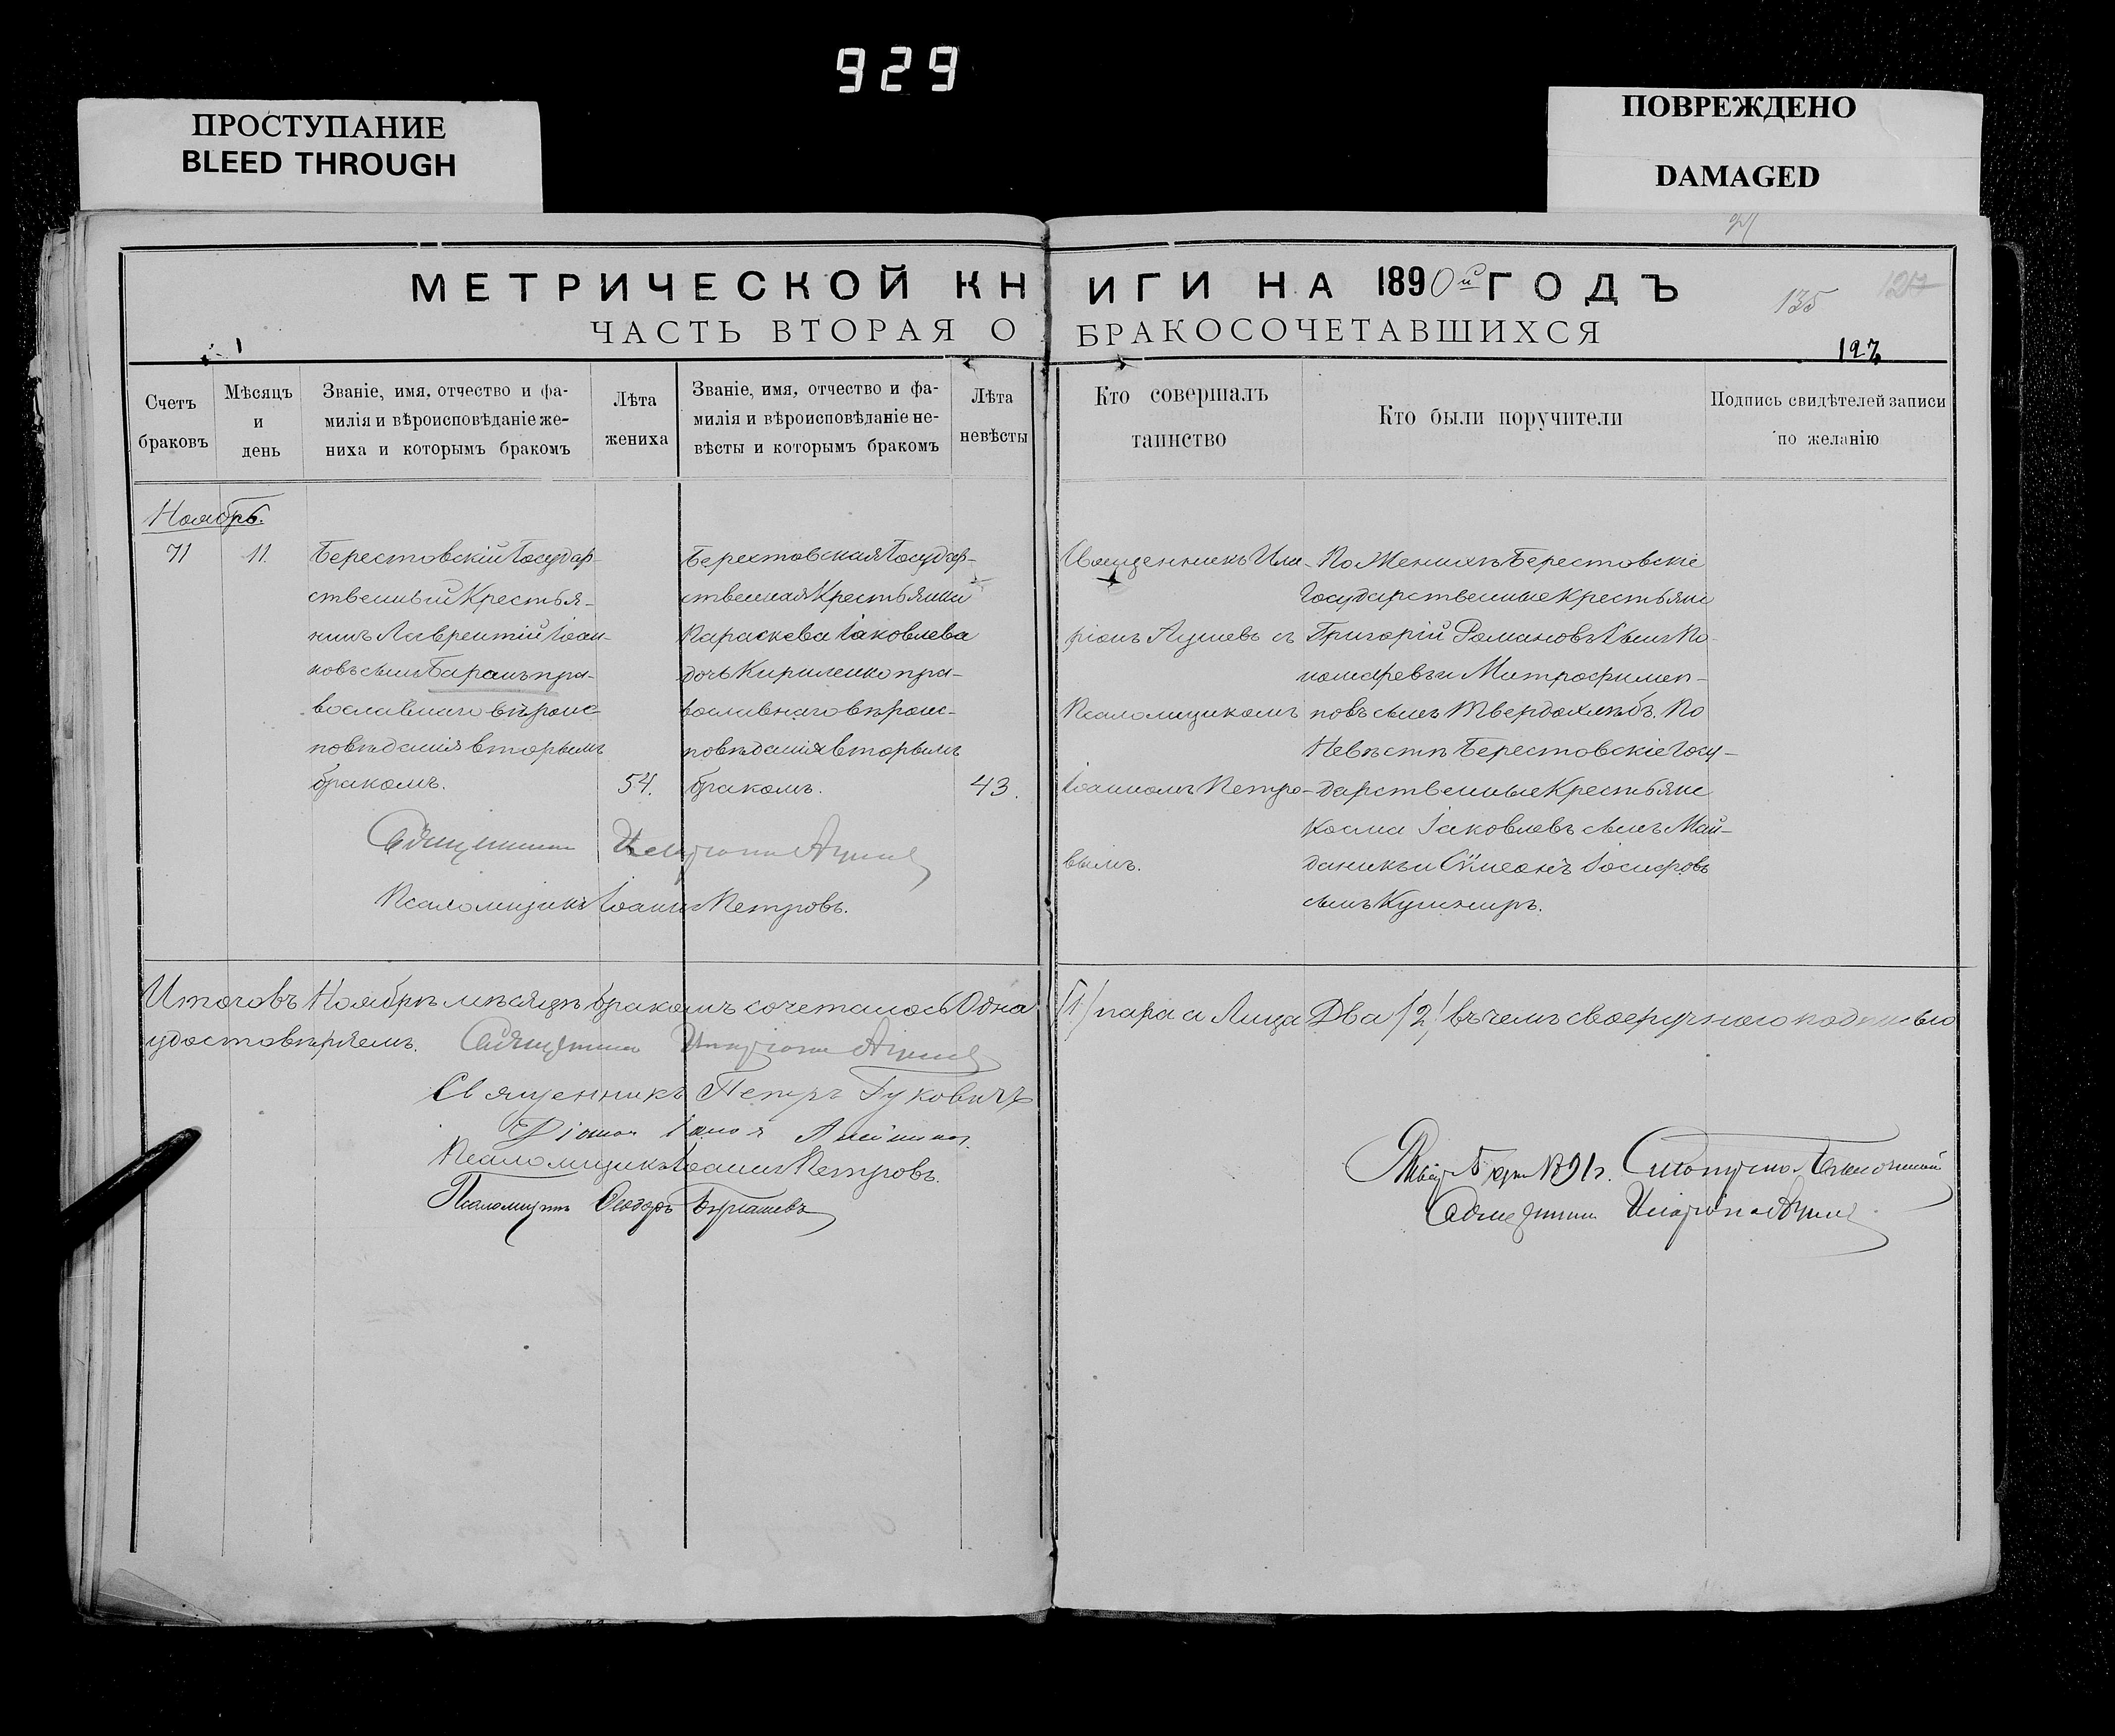 929
ПРОСТУПАНИЕ
BLEED THROUGH
ПОВРЕЖДЕНО
DAMAGED
МЕТРИЧЕСКОЙ КНИГИ НА 1890й ГОДЪ
135
ЧАСТЬ ВТОРАЯ О БРАКОСОЧЕТАВШИХСЯ
127
Счетъ
браковъ
Мѣсяцъ
и
день
Званіе, имя, отчество и фа-
милія и вѣроисповѣданіе же-
ниха и которымъ бракомъ
Лѣта
жениха
Званіе, имя, отчество и фа-
милія и вѣроисповѣданіе не-
вѣсты и которымъ бракомъ
Лѣта
невѣсты
Кто совершалъ
таинство
Кто были поручители
Подпись свидѣтелей записи
по желанію
Ноябрь.
71
11.
Берестовскій Государ-
ственный Крестья-
нинъ Лаврентій Іоан-
новъ сынъ Баранъ пра-
вославнаго вѣроис-
повѣданія вторымъ
бракомъ.
54.
Берестовская Государ-
ственная Крестьянка
Параскева Іаковлева
дочь Кириленко пра-
вославнаго вѣроис-
повѣданія вторымъ
бракомъ.
43.
Священникъ Ила-
ріонъ Ацуевъ съ
Псаломщикомъ
Іоанномъ Петро-
вымъ.
По Женихѣ Берестовскіе
Государственные Крестьяне
Григорій Романовъ сынъ По-
номаревъ и Митрофанъ
повъ сынъ Твердохлѣбъ. По
Невѣстѣ Берестовскіе Госу-
дарственные Крестьяне
Косма Іаковлевъ сынъ Май-
даникъ и Сѵмеонъ Іосифовъ
сынъ Кушниръ.
Священникъ Иларіонъ
Псаломщикъ Іоаннъ Петровъ.
Итого въ Ноябрѣ мѣсяцѣ бракомъ сочеталось Одна /1/ пара а Лица Два /2/ въ чемъ своеручною подписью
удостовѣряемъ. Священникъ Иларіонъ
Священникъ Петръ Гуковичъ
Псаломщикъ Іоаннъ Петровъ.
Псаломщикъ Ѳеодоръ
1891г.
Священникъ Иларіонъ